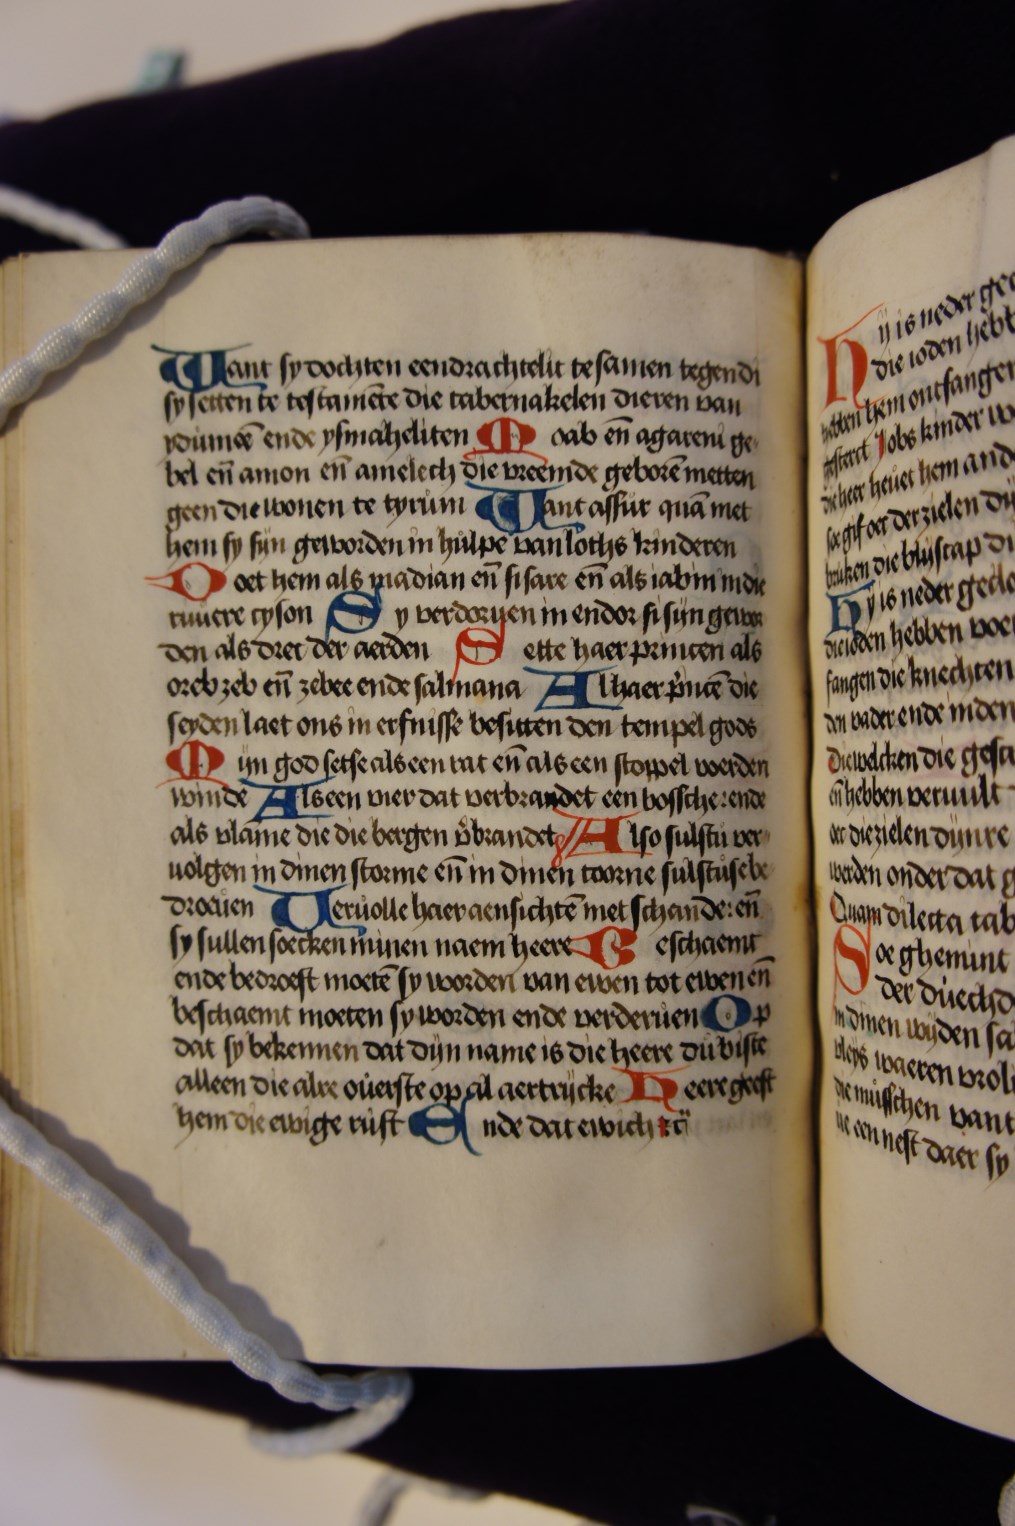 Want sy dochten eendrachtelic te samen tegen di
sy setten te testamēte die tabernakelen dieren van
ydumeē ende ysmaheliten Moab eñ agareni ge
bel eñ amon eñ amelech die vreemde geborē metten
geen die wonen te tyrum Want assur quā met
hem sy sijn geworden in hulpe van loths kinderen
Doet hem als madian eñ sisare eñ als iabin in die
riuiere cyson Sy verdoruen in endor si sijn gewor
den als drec der aerden Sette haer princen als
oreb zeb eñ zebee ende salmana Al haer p̄ncē die
seyden laet ons in erfnisse besitten den tempel gods
Mijn god setse als een rat eñ als een stoppel voerden
winde Als een vier dat verbrandet een bossche: ende
als vlame die die bergen v̄brandet Also sulstu ver
volgen in dinen storme eñ in dinen toorne sulstuse be
droeuen Veruolle haer aensichtē met schande: eñ
sy sullen soecken minen naem heere Beschaemt
ende bedroeft moetē sy worden van ewen tot ewen eñ
beschaemt moeten sy worden ende verderuen Op
dat sy bekennen dat dijn name is die heere du biste
alleen die alre ouerste op al aertrijcke Heere geeft
hem die ewige rust Ende dat ewich
Hij is neder
die ioden hebb
hebben hem ontfangen
Iobs kinder
die heer heuet hem
der zielen
die blijscap
Hy is neder
die ioden hebben
fangen die knechten
den vader ende
Die welcken die
eñ hebben veruult
die zielen
werden onder dat
Quam dilecta tab
Soe ghemint
der duechd
in dinen
vleys waeren
die musschen vant
een nest daer sy